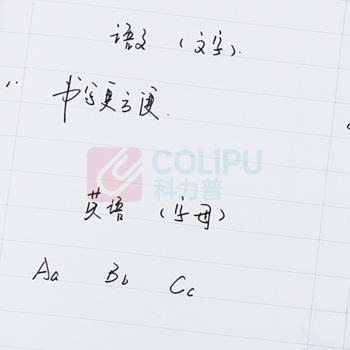 语文（文字）.
书写更方便.
COLIPU
科力普
英语（字母）
Aa Bb Cc